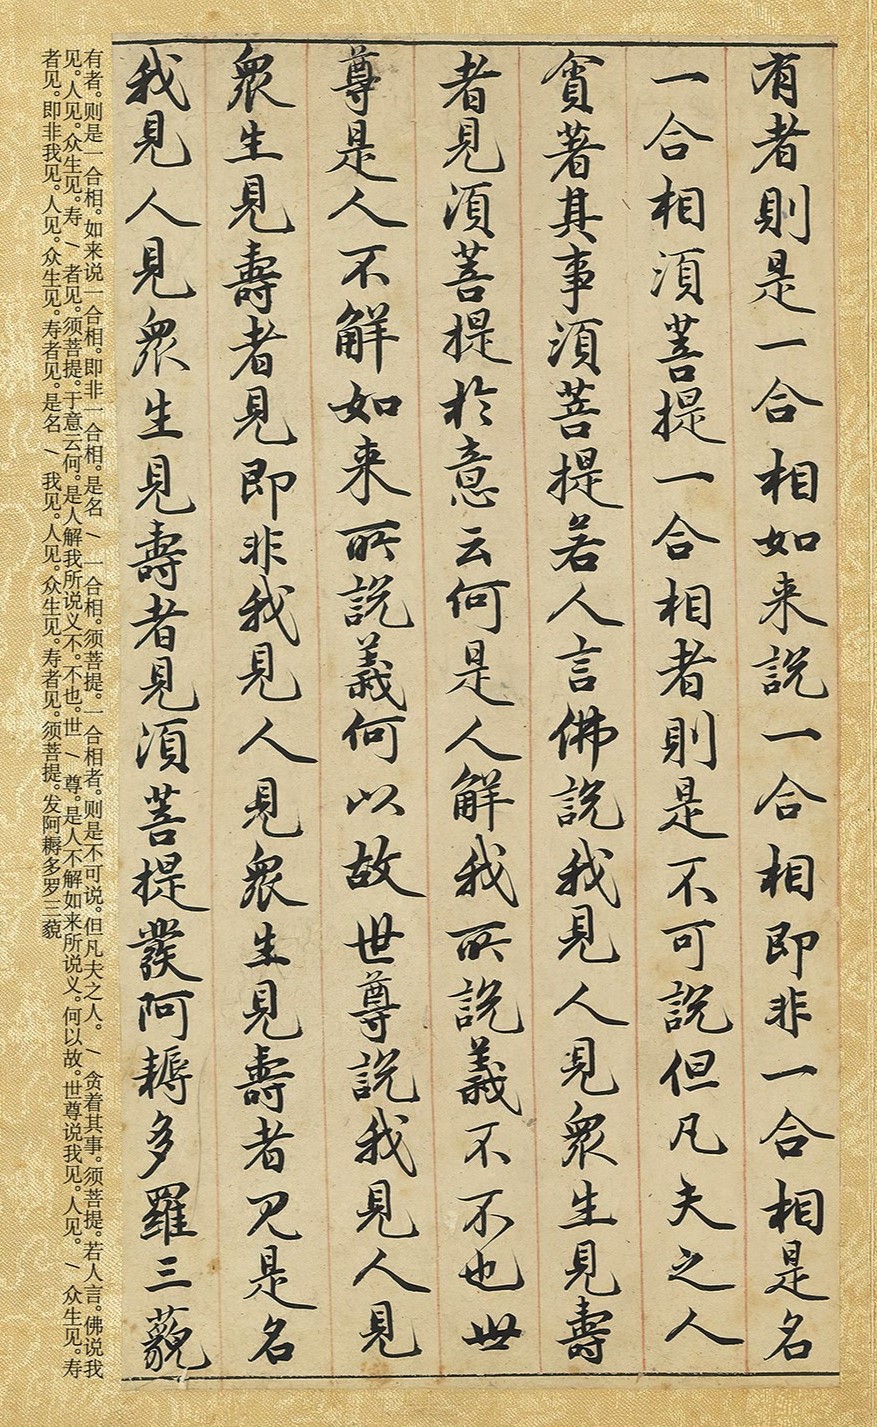 有者則是一合相如来說一合相即非一合相是名
一合相須菩提一合相者則是不可說但凡夫之人
貪著其事須菩提若人言佛說我見人見衆生見壽
者見須菩提於意云何是人解我所說義不不也世
尊是人不解如来所說義何以故世尊說我見人見
衆生見壽者見即非我見人見衆生見壽者見是名
我見人見衆生見壽者見須菩提發阿耨多羅三藐
有者。则是一合相。如来说一合相。即非一合相。是名/一合相。须菩提。一合相者。则是不可说。但凡夫之人。/贪着其事。须菩提。若人言。佛说我
见。人见。众生见。寿/者见。须菩提。于意云何。是人解我所说义不。不也。世/尊。是人不解如来所说义。何以故。世尊说我见。人见。/众生见。寿
者见。即非我见。人见。众生见。寿者见。是名/我见。人见。众生见。寿者见。须菩提。发阿耨多罗三藐